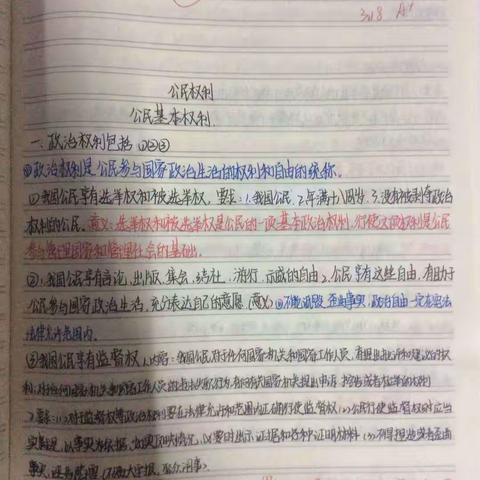 3.18 A+
公民权利
公民基本权利
一、政治权利包括 ①②③
◎政治权利是公民参与国家政治生活的权利和自由的统称。
①我国公民享有选举权和被选举权，要求：1.我国公民，2.年满十八周岁，3.没有被剥夺政治
权利的公民。意义：选举权和被选举权是公民的一项基本政治权利，行使这项权利是公民
参与管理国家和管理社会的基础。
②1.我国公民享有言论、出版、集会、结社、游行、示威的自由2.公民享有这些自由，有助于
公民参与国家政治生活，充分表达自己的意愿（意义）歪曲事实，政治自由一定在宪法
法律允许范围内。
③我国公民享有监督权 1.内容：我国公民对于任何国家机关和国家工作人员，有提出批评和建议的权
利；对于任何国家机关和国家工作人员的违法失职行为，有向有关国家机关提出申诉、控告或者检举的权利
2.要求：(1)对于监督权等政治权利要在法律允许的范围内正确行使监督权；(2)公民行使监督权时应当
实事求是，以事实为依据，如实反映情况，必要时出示证据和各种证明材料 (3)不得捏造或者歪曲
事实